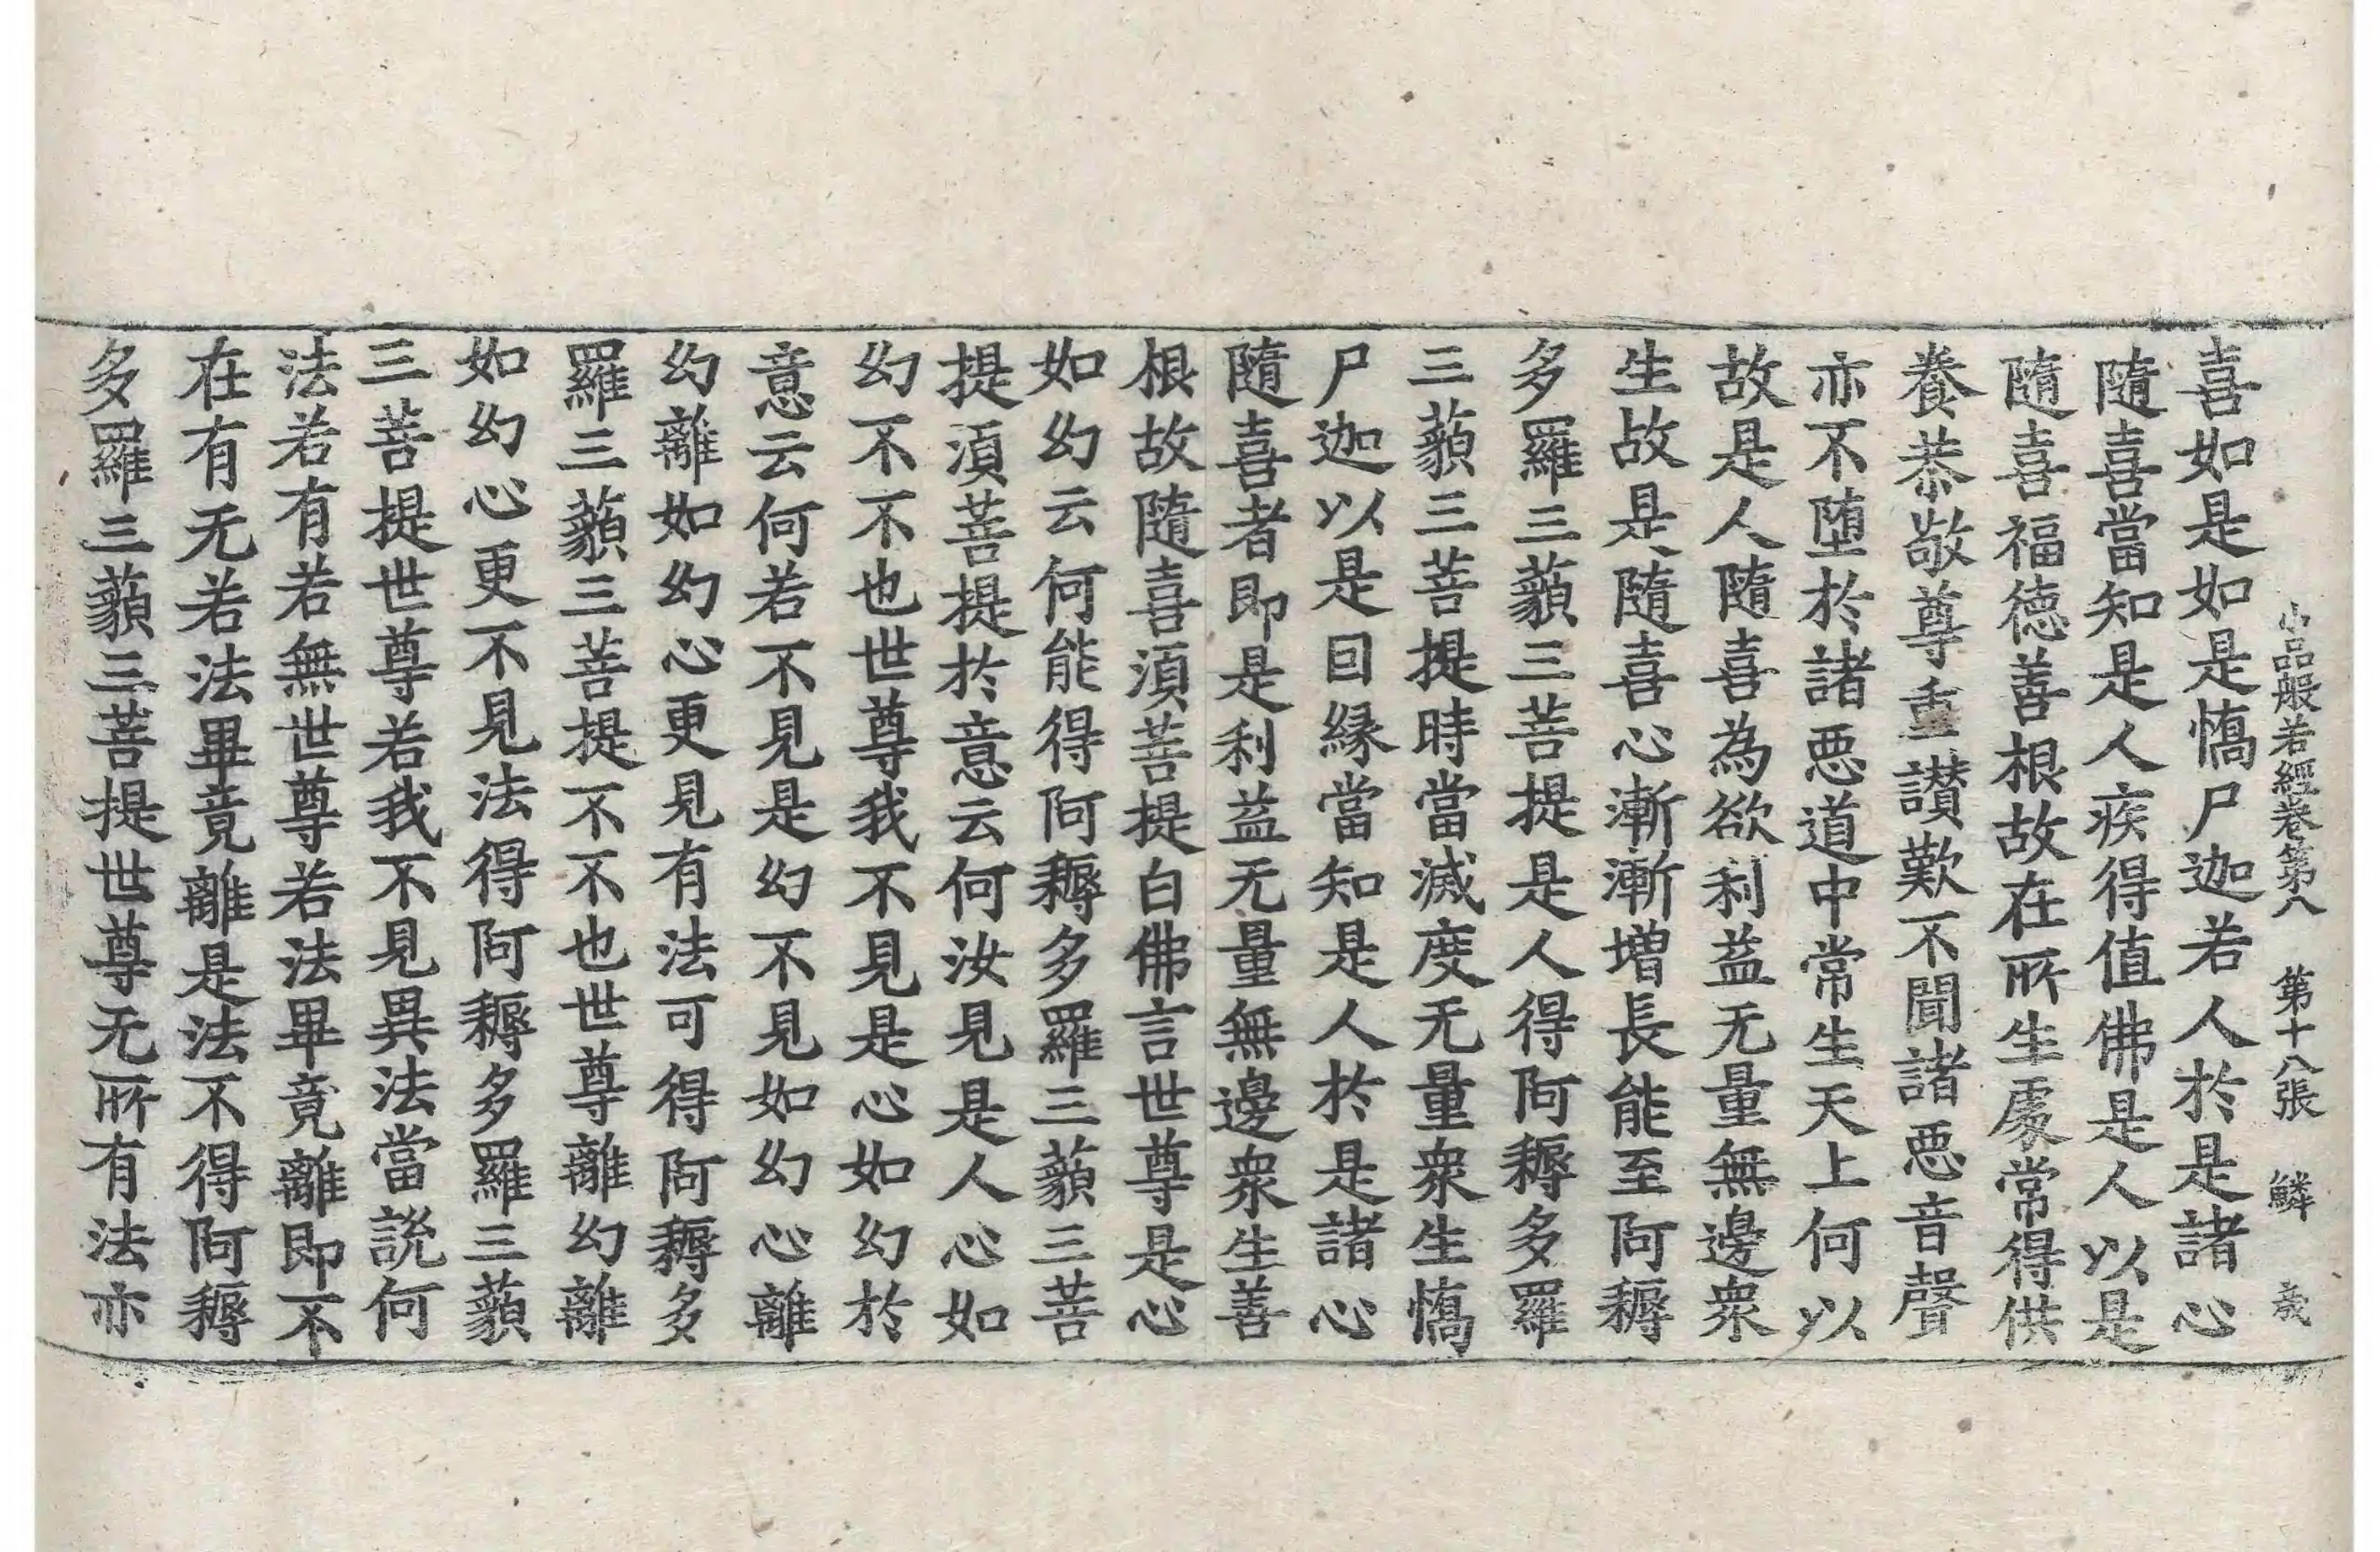 小品般若經卷第八　第十八張　鱗
喜如是如是憍尸迦若人於是諸心
隨喜當知是人疾得值佛是人以是
隨喜福德善根故在所生處常得供
養恭敬尊重讃歎不聞諸惡音聲
亦不墮於諸惡道中常生天上何以
故是人隨喜為欲利益无量無邊衆
生故是隨喜心漸漸增長能至阿耨
多羅三藐三菩提是人得阿耨多羅
三藐三菩提時當滅度无量衆生憍
尸迦以是回緣當知是人於是諸心
隨喜者即是利益无量無邊衆生善
根故隨喜湏菩提白佛言世尊是心
如幻云何能得阿耨多羅三藐三菩
提湏菩提於意云何汝見是人心如
幻不不也世尊我不見是心如幻於
意云何若不見是幻不見如幻心離
幻離如幻心更見有法可得阿耨多
羅三藐三菩提不不也世尊離幻離
如幻心更不見法得阿耨多羅三藐
三菩提世尊若我不見異法當説何
法若有若無世尊若法畢竟離即不
在有无若法畢竟離是法不得阿耨
多羅三藐三菩提世尊无所有法亦